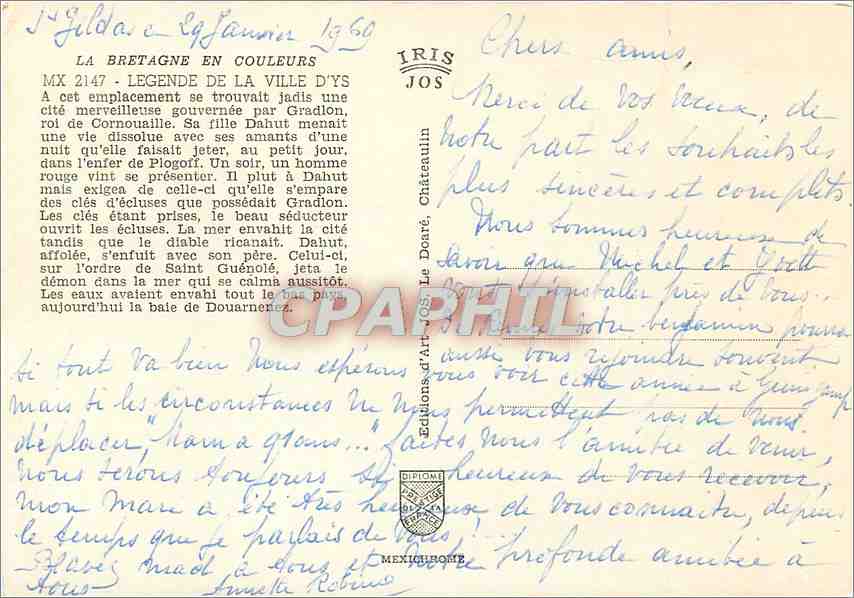 St Gildas le 29 Janvier 1969
LA BRETAGNE EN COULEURS
MX 2147 - LEGENDE DE LA VILLE D'YS
A cet emplacement se trouvait jadis une
cité merveilleuse gouvernée par Gradlon,
roi de Cornouaille. Sa fille Dahut menait
une vie dissolue avec ses amants d'une
nuit qu'elle faisait jeter, au petit jour,
dans l'enfer de Plogoff. Un soir, un homme
rouge vint se présenter. Il plut à Dahut
mais exigea de celle-ci qu'elle s'empare
des clés d'écluses que possédait Gradlon.
Les clés étant prises, le beau séducteur
ouvrit les écluses. La mer envahit la cité
tandis que le diable ricanait. Dahut,
affolée, s'enfuit avec son père. Celui-ci,
sur l'ordre de Saint Guénolé, jeta le
démon dans la mer qui se calma aussitôt.
Les eaux avaient envahi tout le bas pays,
aujourd'hui la baie de Douarnenez.
IRIS
JOS
Editions d'Art JOS, Le Doaré, Châteaulin
CPAPHIL
Chers amis,
Merci de vos voeux, de
notre part les souhaits les
plus sincères et complets.
Nous sommes heureuse de
savoir que Michel et Yvett
vont s'installer près de vous..
votre benjamin pourra
aussi vous rejoindre souvent
si tout va bien nous espérons vous voir cette année à Guingamp
mais si les circonstances ne nous permettent pas de nous
déplacer, "Mama glans..." faites nous l'amitié de venir,
nous serons toujours si heureux de vous recevoir,
mon mari a été très heureux de vous connaitre, depuis
le temps que je parlais de vous!
Blavez mad à tous et notre profonde amitiée à
tous Annette
DIPLOME
PRESTIGE
FRANCE
MEXICHROME